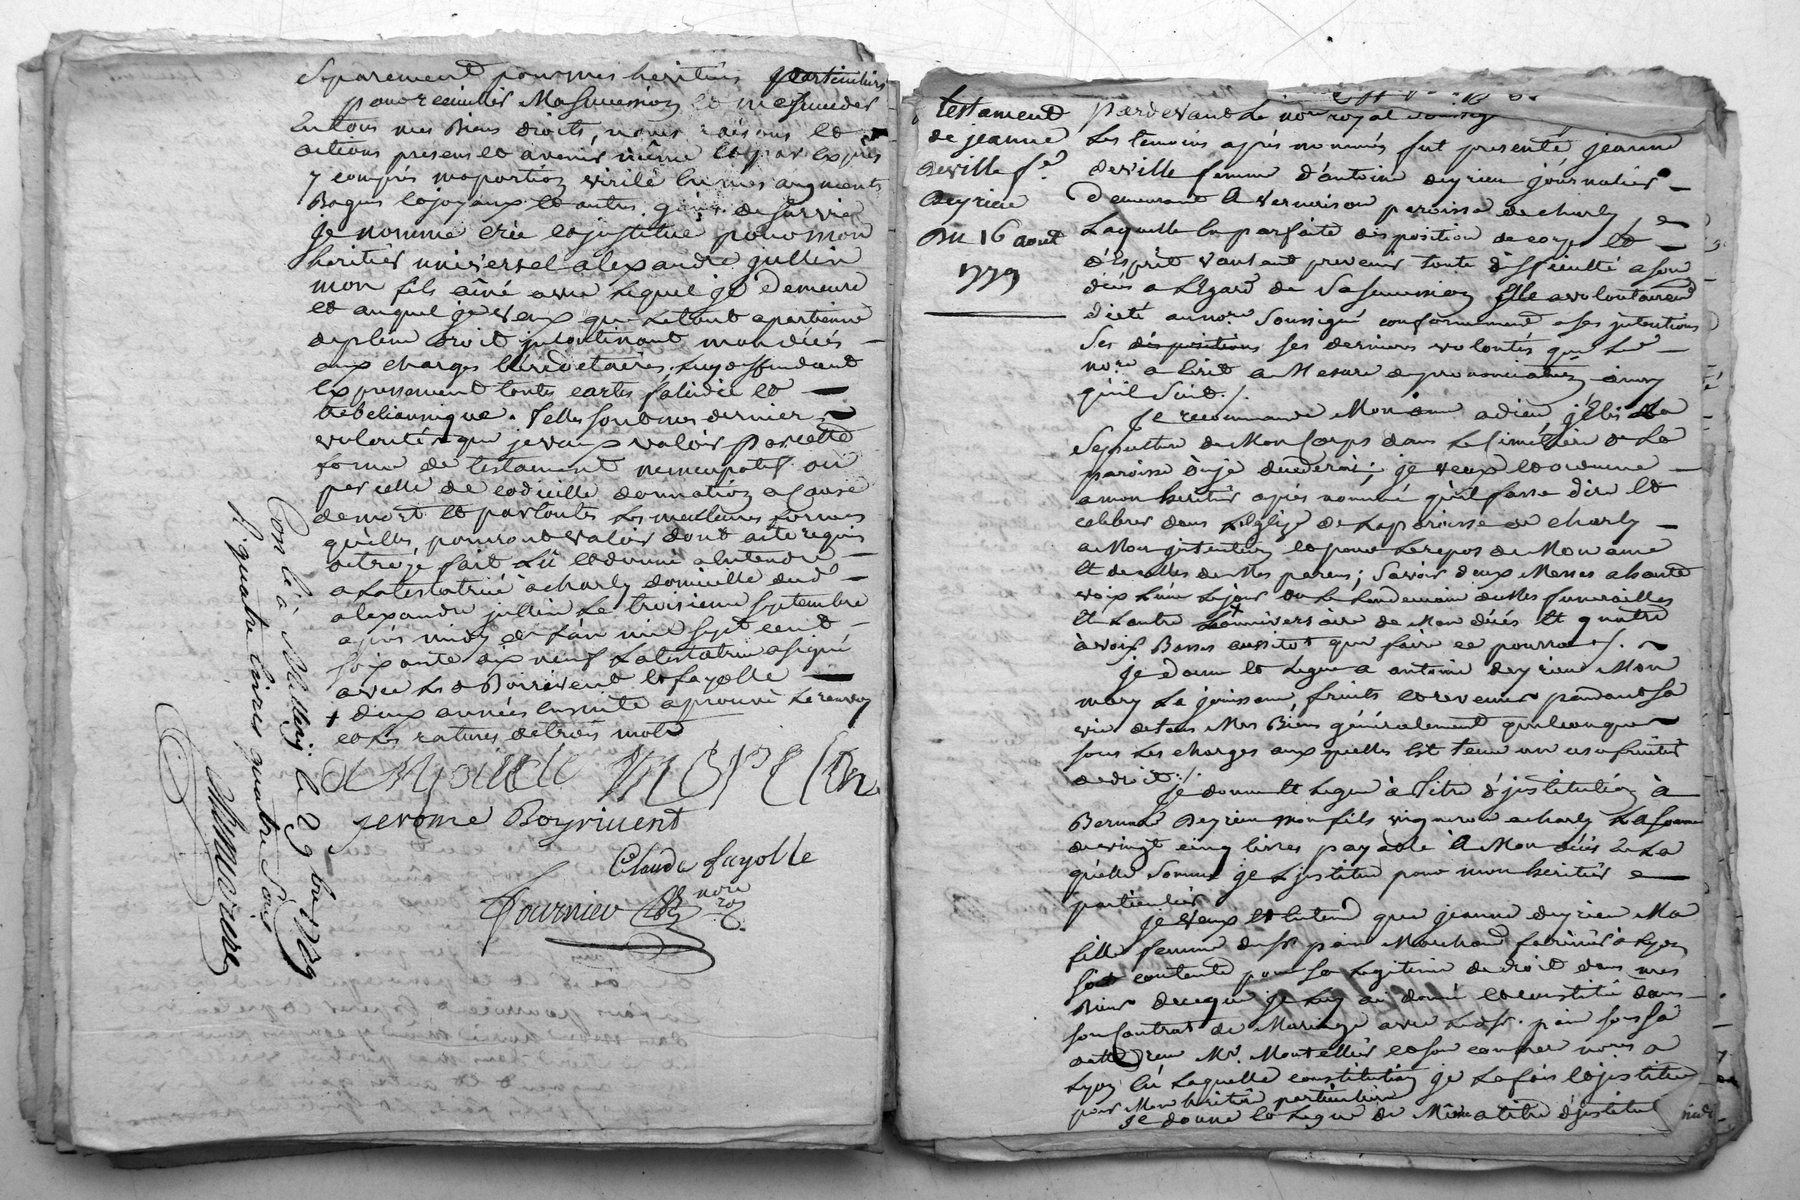 Separement pour mes heritiers particuliers
pour recueillir Ma Succession et me succeder
En tous mes Biens droits, noms raisons et
actions presens et avenir même et par expres
y compris ma portion virile en mes augments
Bagues et joyaux et autres gains de survie
Je nomme crée et jnstitue pour mon
heritier universel alexandre jullien
mon fils aîné avec lequel je demeure
et auquel je veux que le tout apartienne
de plein droit jncontinant mon décés
aux charges hereditaires, luy deffendant
Expressement toutes cartes falcidie et
trebelianique. Telles sont mes dernieres
volontés que je veux valoir par cette
forme de testament nuncupatif ou
par celle de codicille donnation a cause
de mort et par toutes les meilleures formes
qu'elles pourront valoir dont acte requis
octroyé fait lû et donné a entendre
a la testatrice à charly domicille dud.
alexandre jullien Le troisieme Septembre
apres midy de l'an mil sept cent
soixante dix neuf la testatrice a signé
avec les s. Boirivent et fayolle
+ deux années ensuite aprouvé le renvoy
et les ratures de trois mots
jerome Boyrivent
Claude fayolle
fournier
no.re
Con.lé à le 29 bre 1779
R quatre livres quatre sols
testament
de jeanne
deville f.e
deyrieu
Du 16 aout
1779
Pardevant Le no.re royal soussigné
Les temoins après nommés fut presente jeanne
deville femme d'antoine deyrieu journalier
demeurant à vernaison paroisse de charly
Laquelle En parfaite disposition de corps et
d'Esprit voulant prevenir toute difficulté a son
décés a l'égard de Sa Succession Elle a volontairement
dicté au no.re Soussigné conformement a ses jntentions
Ses dispositions ses dernieres volontés que led.
no.re a Ecrit a Mesure de prononciation ainsy
qu'il Suit./.
Je recommande Mon âme a dieu, j'Elis Ma
Sepulture de Mon Corps dans Le Cimetière de La
paroisse où je decederai; je veux et ordonne
a mon heritier après nommé qu'il fasse dire et
celebrer dans L'Eglise de La paroisse de charly
a Mon jntention et pour Le repos de Mon ame
Et de celles de Mes parens; Savoir deux Messes a haute
voix L'une Le jour ou Le Lendemain de Mes funerailles
Et L'autre L'anniversaire de Mon décés Et quatre
à voix Basses aussitot que faire ce pourra./.
Je donne et Legue a antoine deyrieu Mon
mary La jouissance, fruits et revenus pendant sa
vie de tous Mes Biens généralement quelconques
sous Les charges aux quelles Est tenu un usufruitier
de droit./.
Je donne Et Legue à Titre d'jnstitution à
Bernard Deyrieu mon fils vigneron a charly La somme
de vingt cinq livres payable à Mon décés En La
quelle Somme je L'jnstitue pour mon heritier
particulier
Je veux et Entend que jeanne deyrieu Ma
fille femme du Sr. pain Marchand à Lyon
soit contente pour sa Legitime de droit dans mes
Biens de ce que je Luy ai donné et constitué dans
son Contrat de Mariage avec Led. Sr. pain sous sa
datte reçu M.e Montellier et son confrere no.res a
Lyon En Laquelle constitution je La fais et jnstitue
pour Mon heritiere particuliere
Je donne et Legue de Même a titre d'jnstitution